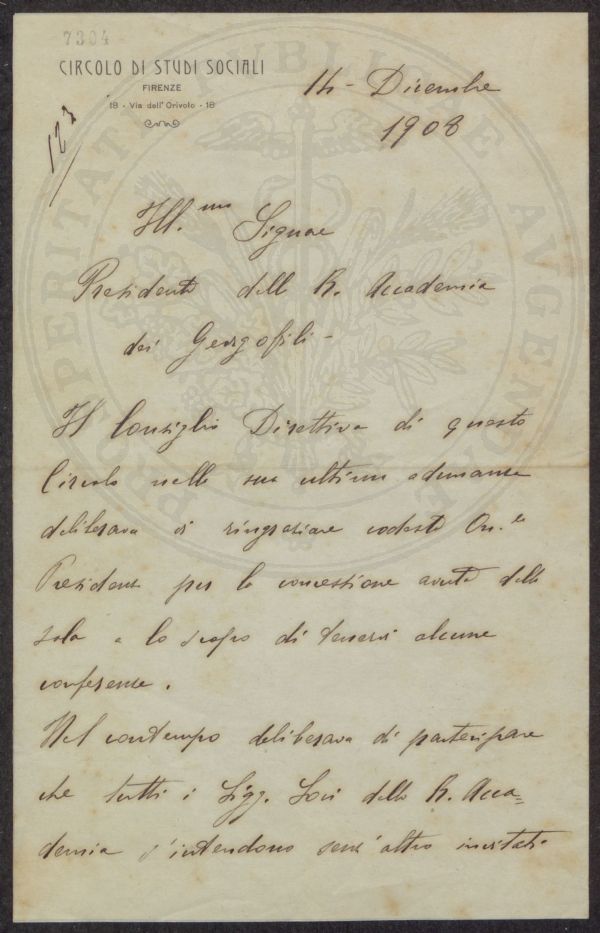 7304
CIRCOLO DI STUDI SOCIALI
FIRENZE
18 - Via dell'Orivolo - 18
123
14 - Dicembre
1908
Ill.mo Signore
Presidente dell R. Accademia
dei Georgofili -
Il Consiglio Direttivo di questo
Circolo nella sua ultima adunanza
deliberava di ringraziare codesta On.le
Presidenza per la concessione avuta della
sala a lo scopo di tenervi alcune
conferenze.
Nel contempo deliberava di partecipare
che tutti i Sigg. Soci della R. Acca=
demia s'intendono senz'altro invitati
PROSPERITATI PUBLICAE AUGENDAE